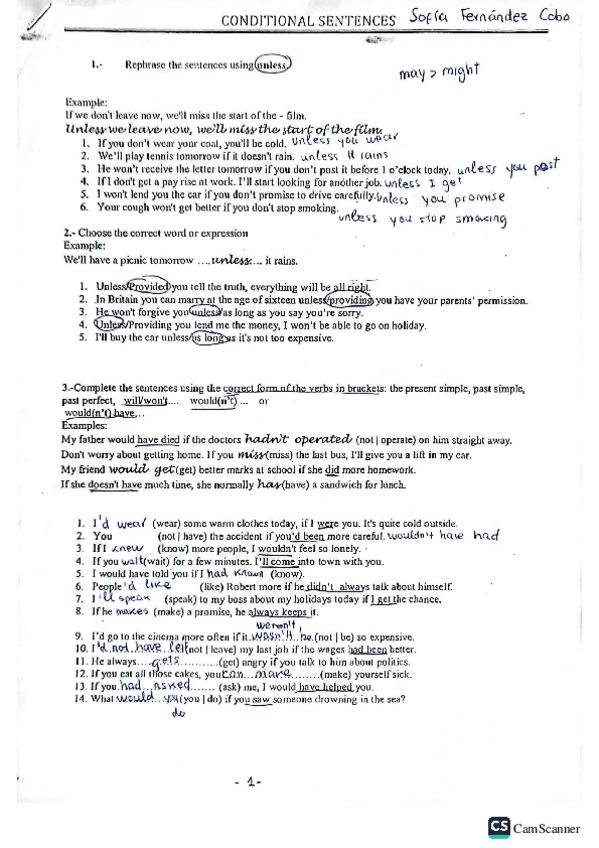 CONDITIONAL SENTENCES Sofía Fernández Cobo
1.- Rephrase the sentences using unless. may > might
Example:
If we don't leave now, we'll miss the start of the - film.
Unless we leave now, we'll miss the start of the film.
1. If you don't wear your coal, you'll be cold. unless you wear
2. We'll play tennis tomorrow if it doesn't rain. unless it rains
3. He won't receive the letter tomorrow if you don't post it before 1 o'clock today. unless you post
4. If I don't get a pay rise at work. I'll start looking for another job. unless I get
5. I won't lend you the car if you don't promise to drive carefully. unless you promise
6. Your cough won't get better if you don't stop smoking. unless you stop smoking
2.- Choose the correct word or expression
Example:
We'll have a picnic tomorrow ....unless.... it rains.
1. Unless/Provided you tell the truth, everything will be all right.
2. In Britain you can marry at the age of sixteen unless/providing you have your parents' permission.
3. He won't forgive you unless/as long as you say you're sorry.
4. Unless/Providing you lend me the money, I won't be able to go on holiday.
5. I'll buy the car unless/as long as it's not too expensive.
3.-Complete the sentences using the correct form of the verbs in brackets: the present simple, past simple,
past perfect, will/won't.... would(n't) ... or
would(n't) have...
Examples:
My father would have died if the doctors hadn't operated (not | operate) on him straight away.
Don't worry about getting home. If you miss(miss) the last bus, I'll give you a lift in my car.
My friend would get(get) better marks at school if she did more homework.
If she doesn't have much time, she normally has(have) a sandwich for lunch.
1. I'd wear (wear) some warm clothes today, if I were you. It's quite cold outside.
2. You (not | have) the accident if you'd been more careful. wouldn't have had
3. If I knew (know) more people, I wouldn't feel so lonely.
4. If you wait(wait) for a few minutes. I'll come into town with you.
5. I would have told you if I had known (know).
6. People'd like (like) Robert more if he didn't always talk about himself.
7. I'll speak (speak) to my boss about my holidays today if I get the chance.
8. If he makes (make) a promise, he always keeps it.
weren't
9. I'd go to the cinema more often if it be.(not | be) so expensive.
10. I'd not have left(not | leave) my last job if the wages had been better.
11. He always....gets...........(get) angry if you talk to him about politics.
12. If you eat all those cakes, you can...make........(make) yourself sick.
13. If you had...asked....... (ask) me, I would have helped you.
14. What would...you(you | do) if you saw someone drowning in the sea?
do
- 1 -
CS CamScanner